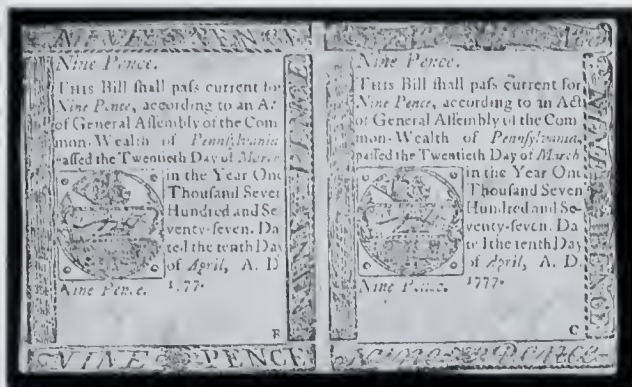 NINE PENCE
Nine Pence.
THIS Bill ſhall paſs current for
Nine Pence, according to an Act
of General Aſſembly of the Com
mon-Wealth of Pennſylvania
paſſed the Twentieth Day of March
in the Year One
Thouſand Seven
Hundred and Se
venty-ſeven. Da
ted the tenth Day
of April, A. D
1777.
Nine Pence.
B
NINE PENCE
NINE PENCE
Nine Pence.
THIS Bill ſhall paſs current for
Nine Pence, according to an Act
of General Aſſembly of the Com
mon-Wealth of Pennſylvania,
paſſed the Twentieth Day of March
in the Year One
Thouſand Seven
Hundred and Se-
venty-ſeven. Da
ted the tenth Day
of April, A. D
1777.
Nine Pence.
C
NINE PENCE
Pence